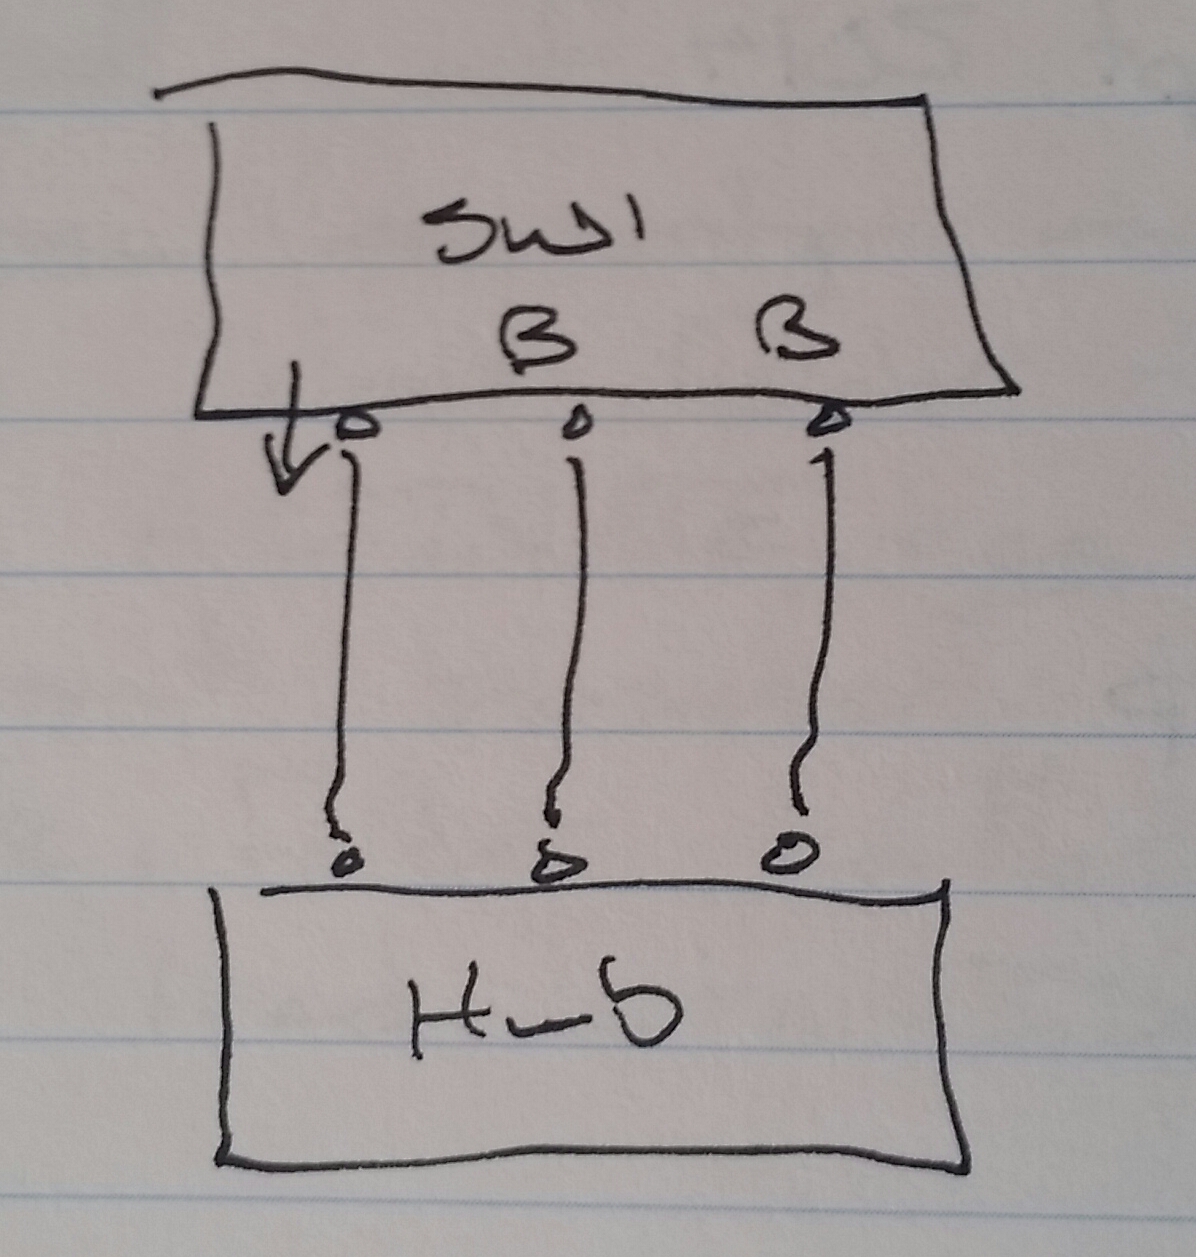 Sw1
B B
Hub